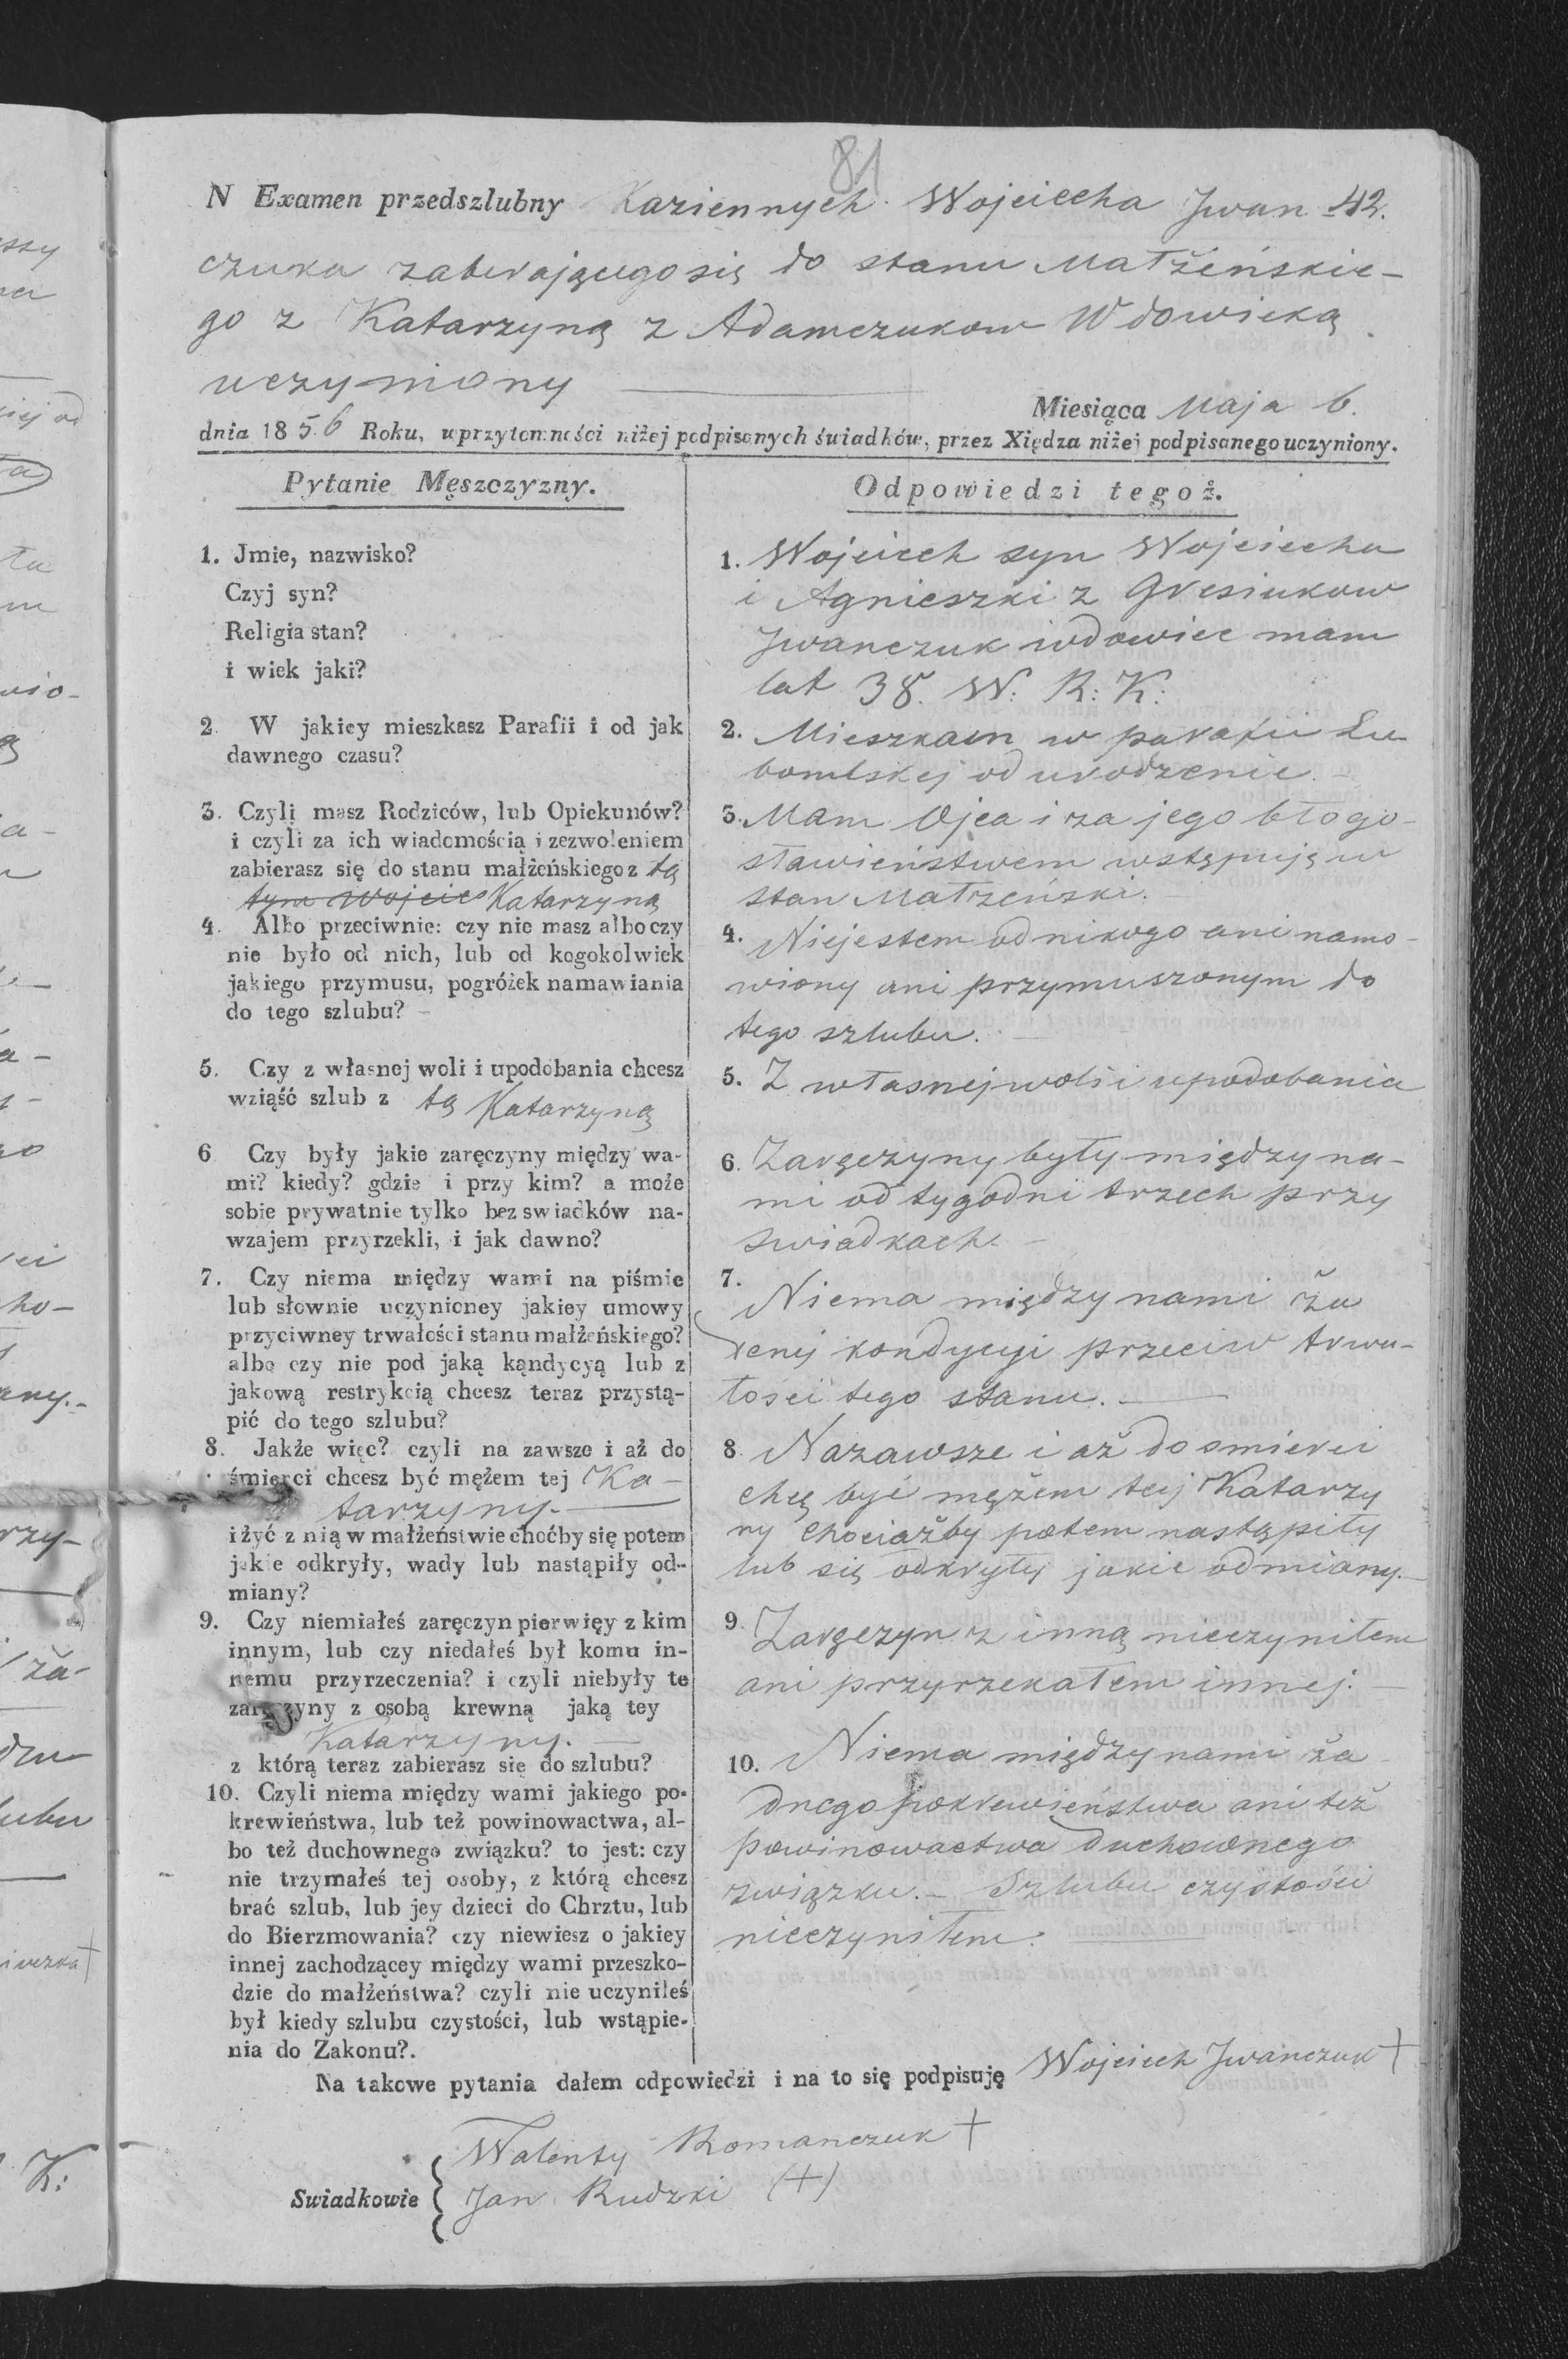 81
N Examen przedszlubny Kaziennych Wojciecha Jwan 42.
czuka zabierającego się do stanu Małżeńskie-
go z Katarzyną z Adamczukow Wdowieką
uczyniony
Miesiąca Maja 6.
dnia 1856 Roku, uprzytomności niżej podpisanych świadków, przez Xiędza niżej podpisanego uczyniony.
Pytanie Męszczyzny.
1. Jmie, nazwisko?
Czyj syn?
Religia stan?
i wiek jaki?
2. W jakiey mieszkasz Parafii i od jak
dawnego czasu?
3. Czyli masz Rodziców, lub Opiekunów?
i czyli za ich wiadomością i zezwoleniem
zabierasz się do stanu małżeńskiego z tą
tym Wojcie Katarzyną
4. Albo przeciwnie: czy nie masz albo czy
nie było od nich, lub od kogokolwiek
jakiego przymusu, pogróżek namawiania
do tego szlubu?
5. Czy z własnej woli i upodobania chcesz
wziąść szlub z tą Katarzyną
6 Czy były jakie zaręczyny między wa-
mi? kiedy? gdzie i przy kim? a może
sobie prywatnie tylko bez swiadków na-
wzajem przyrzekli, i jak dawno?
7. Czy niema między wami na piśmie
lub słownie uczynioney jakiey umowy
przyciwney trwałości stanu małżeńskiego?
albo czy nie pod jaką kądycyą lub z
jakową restrykcią chcesz teraz przystą-
pić do tego szlubu?
8. Jakże więc? czyli na zawsze i aż do
śmierci chcesz być mężem tej Ka-
tarzyny.
i żyć z nią w małżeństwie choćby się potem
jakie odkryły, wady lub nastąpiły od-
miany?
9. Czy niemiałeś zaręczyn pierwięy z kim
innym, lub czy niedałeś był komu in-
nemu przyrzeczenia? i czyli niebyły te
zaręczyny z osobą krewną jaką tey
Katarzyny.
z którą teraz zabierasz się do szlubu?
10. Czyli niema między wami jakiego po-
krewieństwa, lub też powinowactwa, al-
bo też duchownego związku? to jest: czy
nie trzymałeś tej osoby, z którą chcesz
brać szlub, lub jey dzieci do Chrztu, lub
do Bierzmowania? czy niewiesz o jakiey
innej zachodzącey między wami przeszko-
dzie do małżeństwa? czyli nie uczyniłeś
był kiedy szlubu czystości, lub wstąpie-
nia do Zakonu?.
Odpowiedzi tegoż.
1. Wojciech syn Wojciecha
i Agnieszki z Gresiukow
Jwanczuk wdowiec mam
lat 38. W. R: K:
2. Mieszkam w parafii Lu
bomlskej od urodzenie.
3. Mam Ojca i za jego błogo-
sławieństwem wstępuję w
stan Małżeński.
4. Niejestem od nikogo ani namo-
wiony ani przymuszonym do
tego szlubu.
5. Z własnej woli i upodobania
6. Zaręczyny były między na-
mi od tygodni trzech przy
swiadkach.
7. Niema między nami ża
denej kondycyi przeciw trwa-
łości tego stanu.
8. Nazawsze i aż do smierci
chcę być mężem tej Katarzy
ny chociażby potem nastąpiły
lub się odkryły jakie odmiany.
9. Zaręczyn z inną nieczyniłem
ani przyrzekałem innej.
10. Niema między nami ża
dnego pokrewieństwa ani też
powinowactwa duchownego
związku. Szlubu czystości
nieczyniłem.
Na takowe pytania dałem odpowiedzi i na to się podpisuję Wojciech Jwanczuk +
Walenty Romanczuk +
Swiadkowie
Jan Rudzki (+)